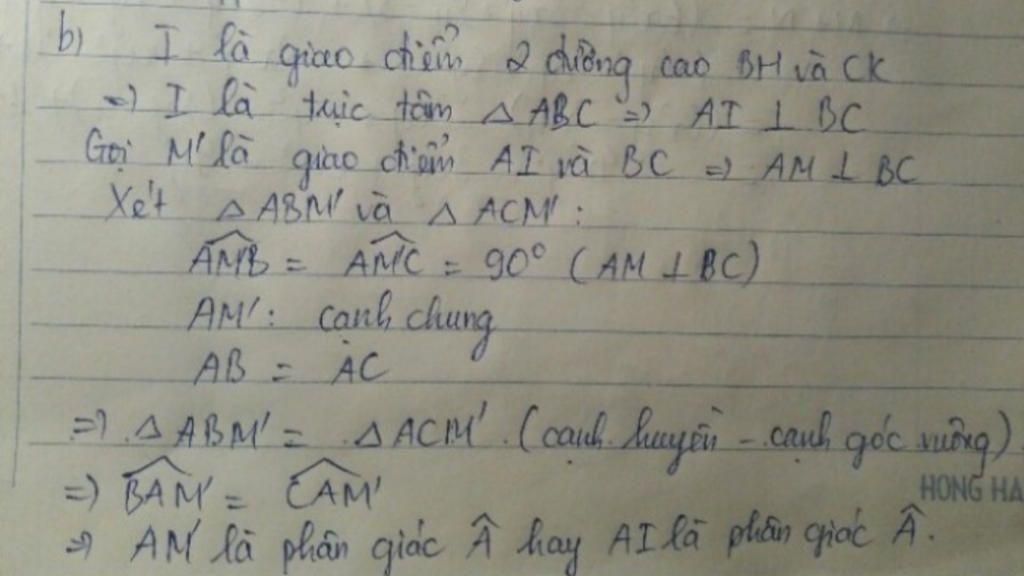 b) I là giao điểm 2 đường cao BH và CK
=> I là trực tâm △ ABC => AI ⊥ BC
Gọi M' là giao điểm AI và BC => AM ⊥ BC
Xét △ ABM' và △ ACM' :
\widehat{AM'B} = \widehat{AM'C} = 90° (AM ⊥ BC)
AM' : cạnh chung
AB = AC
=> △ ABM' = △ ACM' (cạnh huyền - cạnh góc vuông)
=> \widehat{BAM'} = \widehat{CAM'}
HONG HA
=> AM' là phân giác Â hay AI là phân giác Â.